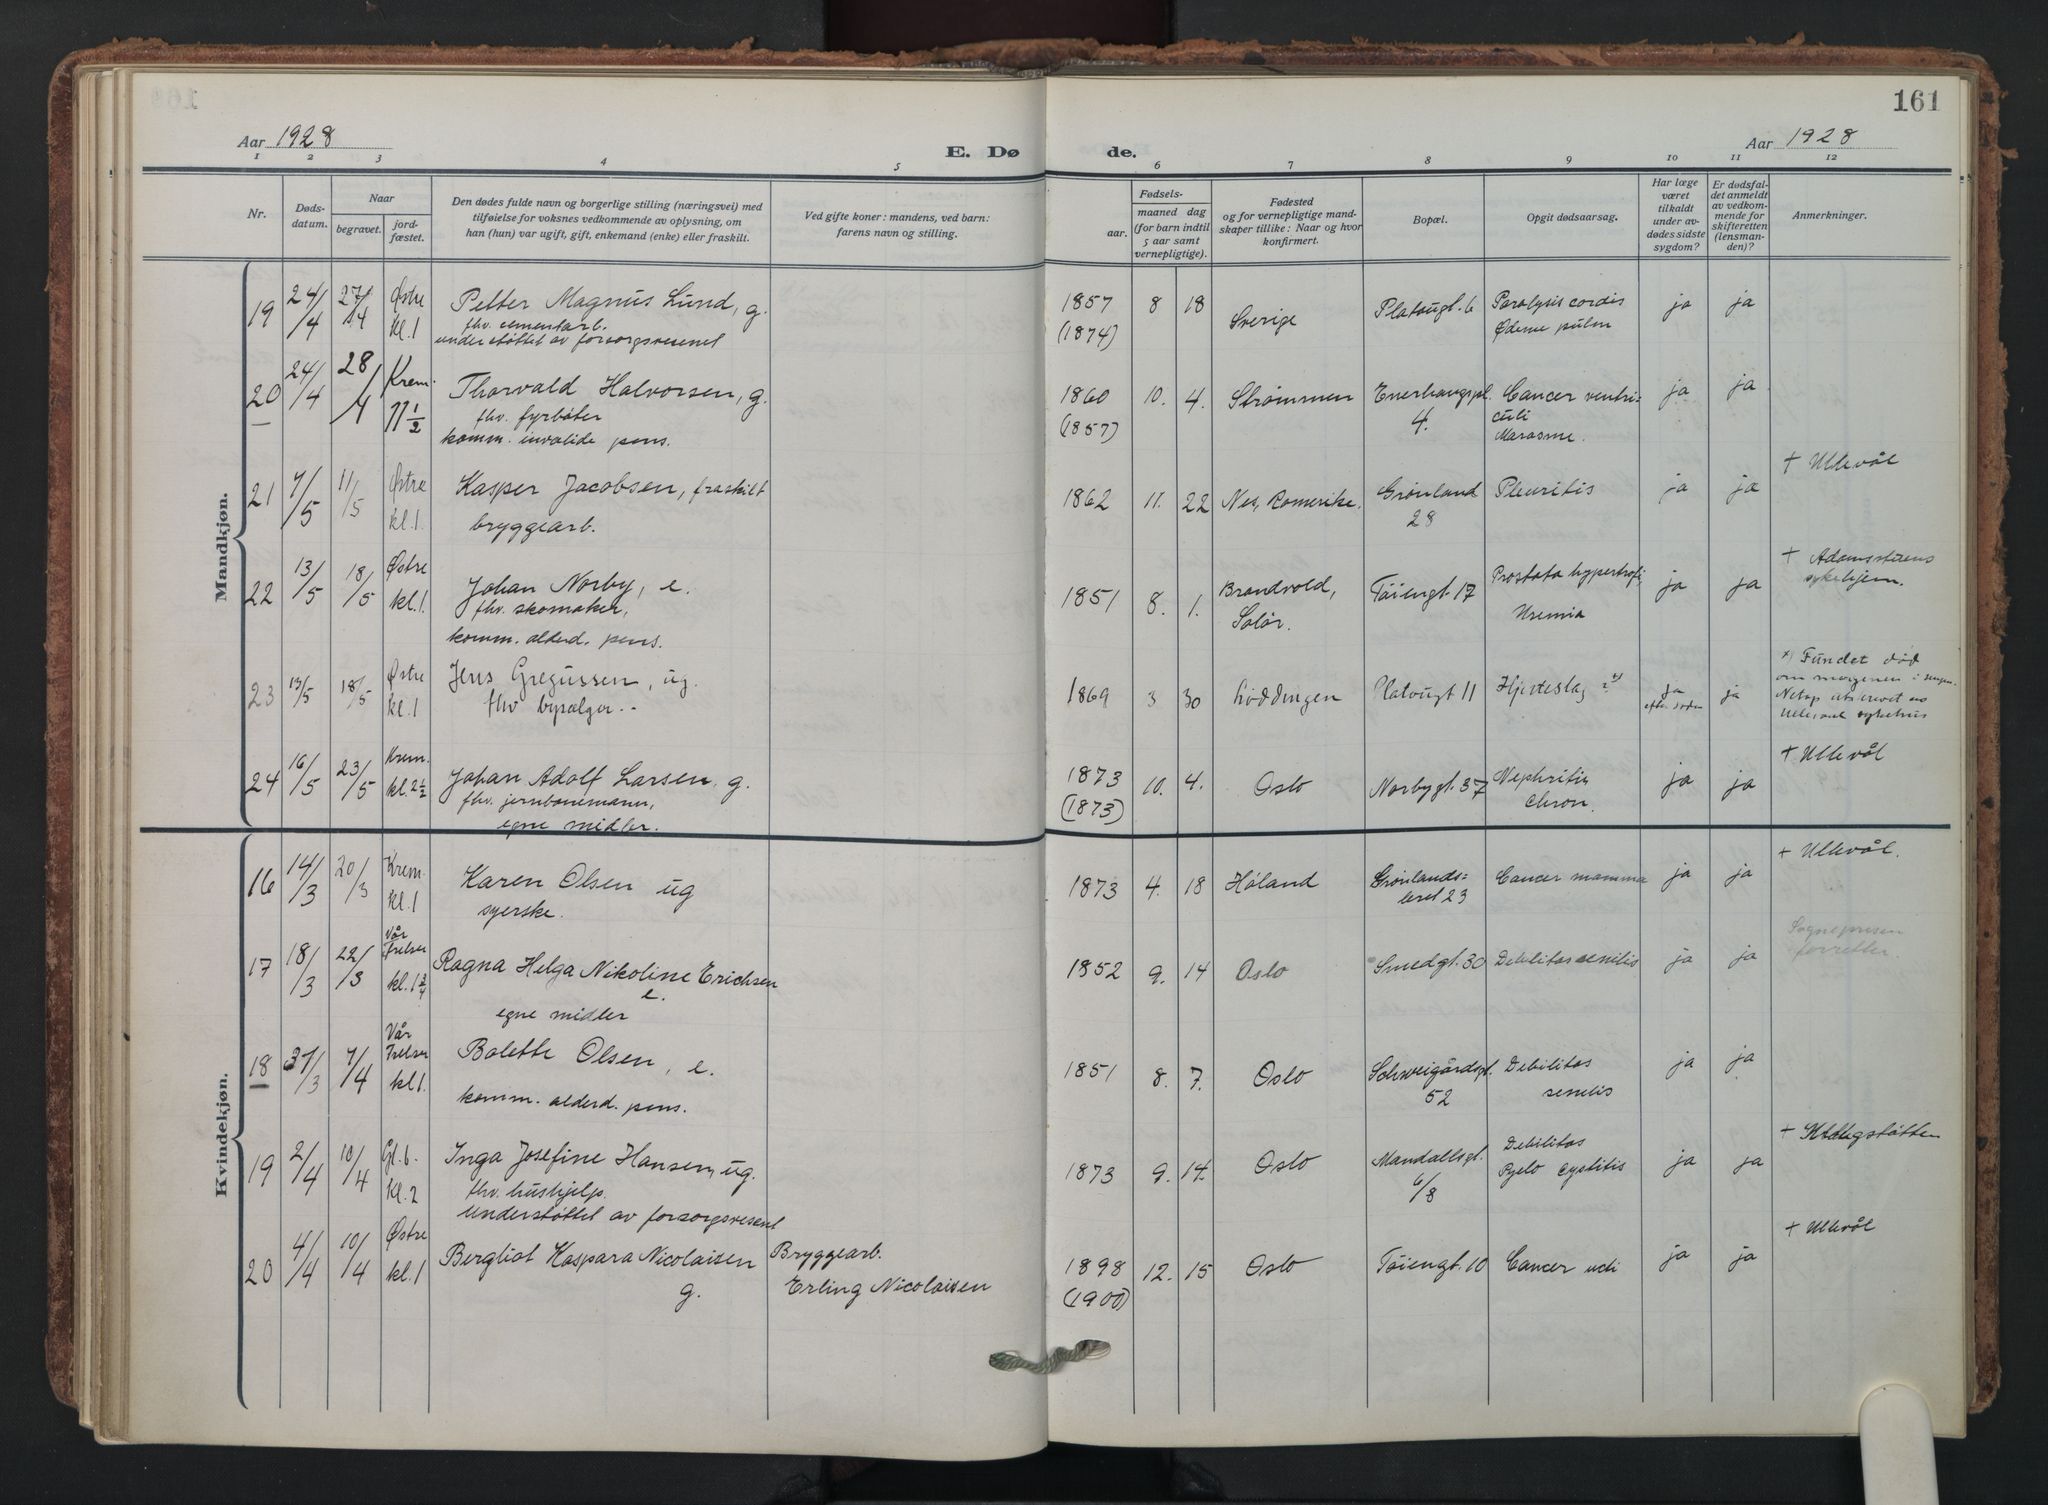 161
Aar 1928
E. Dø de.
Aar 1928
1 2 3 4 5 6 7 8 9 10 11 12
Nr.
Døds-
datum.
Naar
begravet.
jord-
fæstet.
Den dødes fulde navn og borgerlige stilling (næringsvei) med
tilføielse for voksnes vedkommende av oplysning, om
han (hun) var ugift, gift, enkemand (enke) eller fraskilt.
Ved gifte koner: mandens, ved barn:
farens navn og stilling.
Fødsels-
aar.
maaned dag
(for barn indtil
5 aar samt
vernepligtige).
Fødested
og for vernepligtige mand-
skaper tillike: Naar og hvor
konfirmert.
Bopæl.
Opgit dødsaarsag.
Har læge
været
tilkaldt
under av-
dødes sidste
sygdom?
Er dødsfal-
det anmeldt
av vedkom-
mende for
skifteretten
(lensman-
den)?
Anmerkninger.
Mandkjøn.
19 24/4 27/4 Østre kl. 1
Petter Magnus Lund, g.
fhv. cementarb.
understøttet av forsorgsvesenet
1857 (1874) 8 18 Sverige Platougt. 6
Paralysis cordis
Ødeme pulm
ja ja
20 24/4 28/4 Krem. 11 1/2
Thorvald Halvorsen, g.
fhv. fyrbøter
komm. invalide pens.
1860 (1857) 10. 4. Strømmen Enerhaugpl. 4.
Cancer ventri-
culi
Marasme.
ja ja
21 7/5 11/5 Østre kl. 1.
Kasper Jacobsen, fraskilt
bryggearb.
1862 11. 22 Nes, Romerike. Grønland 28
Pleuritis
ja ja
+ Ullevål
22 13/5 18/5 Østre kl. 1.
Johan Norby, e.
fhv. skomaker,
komm. alderd. pens.
1851 8. 1. Brandvold, Solør. Tøiengt. 17
Prostata hypertrofi,
Uremia
ja ja
+ Adamsstuens
sykehjem.
23 13/5 18/5 Østre kl. 1
Jens Gregussen, ug.
fhv bysælger..
1869 3 30 Løddingen Platougt 11
Hjerteslag ? x)
ja efter døden ja
x) Fundet død
om morgenen i sengen.
Ullevaal sykehus
24 16/5 23/5 Krem. kl. 2 1/2
Johan Adolf Larsen, g.
fhv. jernbanemann,
egne midler.
1873 (1873) 10. 4. Oslo Norbygt. 37
Nephritis
chron.
ja ja
+ Ullevål
Kvindekjøn.
16 14/3 20/3 Krem. kl. 1
Karen Olsen ug
syerske.
1873 4. 18 Høland Grønlands=
leret 23
Cancer mamma
ja ja
+ Ullevål.
17 18/3 22/3 Vår Frelser kl. 1 3/4
Ragna Helga Nikoline Erichsen
e.
egne midler
1852 9. 14 Oslo Smedgt. 30
Debilitas senilis
ja ja
Sognepresten
forretter
18 31/3 7/4 Vår Frelser kl. 1.
Bolette Olsen, e.
komm. alderd. pens.
1851 8. 7. Oslo Schweigårdsgt. 52
Debilitas
senilis
ja ja
19 2/4 10/4 Gl. b. kl. 2
Inga Josefine Hansen, ug.
fhv. hushjelp.
understøttet av forsorgsvesenet
1873 9. 14. Oslo Mandallsgt. 6/8
Debilitas
Pyelo cystitis
ja ja
20 4/4 10/4 Østre kl. 1
Bergliot Kaspara Nicolaisen
g.
Bryggearb.
Erling Nicolaisen
1898 (1900) 12. 15 Oslo Tøiengt. 10
Cancer
ja ja
+ Ullevål